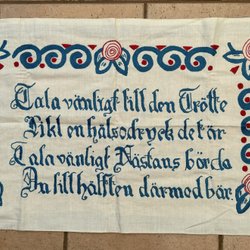 Tala vänligt till den Trötte
Likt en hälsodryck det är
Tala vänligt Nästans börda
Du till hälften därmed bär